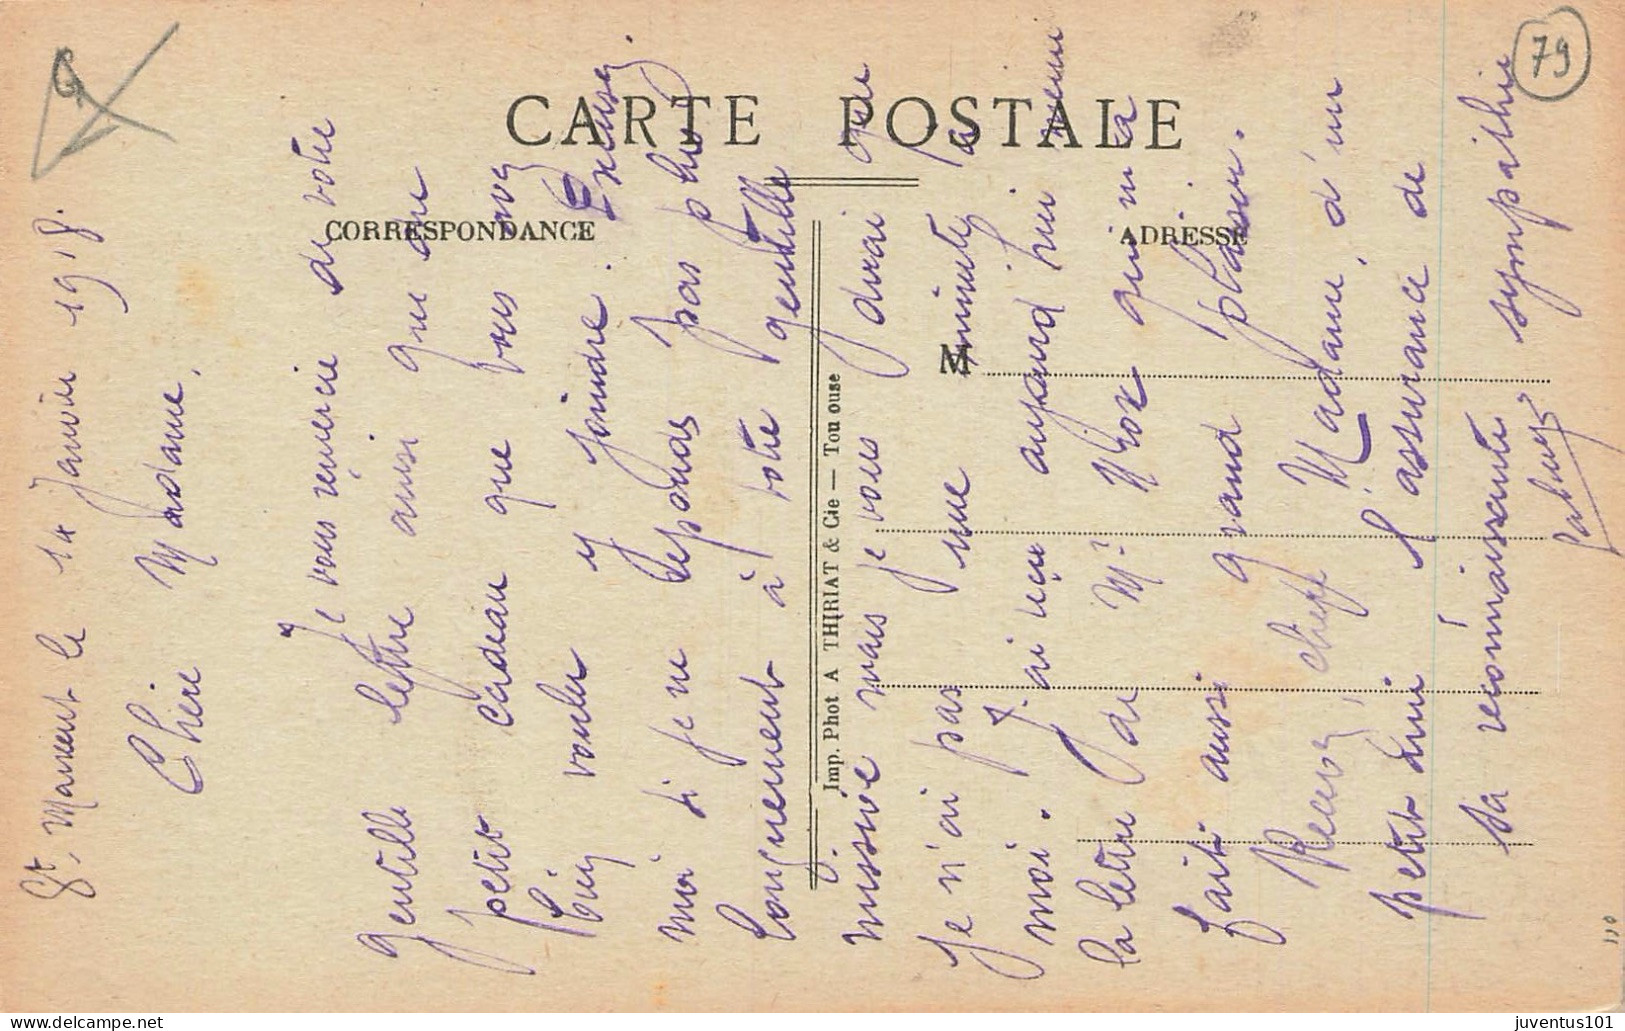 CARTE POSTALE
CORRESPONDANCE
ADRESSE
M
Imp. Phot A THIRIAT & Cie — Tou ouse
79
St. Maixent le 14 Janvier 1918.
Chère Madame,
Je vous remercie de votre
gentille lettre ainsi que du
petit cadeau que vous avez
bien voulu y joindre. Excusez
moi si je ne reponds pas plus
longuement à votre gentille
missive mais je vous jurai que
je n'ai pas une minute a
moi. J'ai reçu aujourd'hui même
la lettre de Mr qui m'a
fait aussi grand plaisir.
Recevez, chère Madame, d'un
petit ami l'assurance de
sa reconnaissante sympathie
110
juventus101